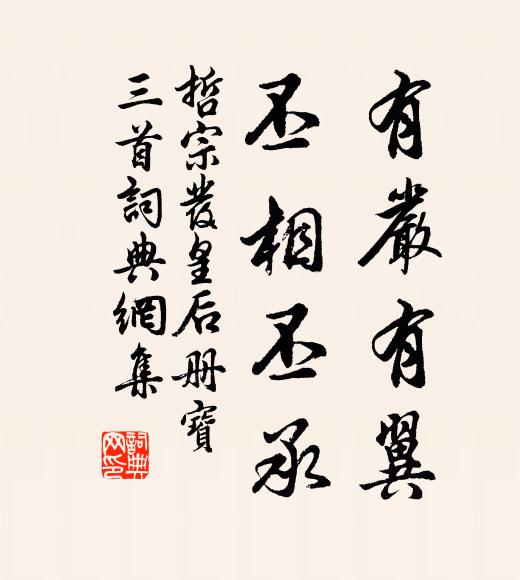 有嚴有翼
丕相丕承
哲宗發皇后册寶
三首詞典網集
詞典網印